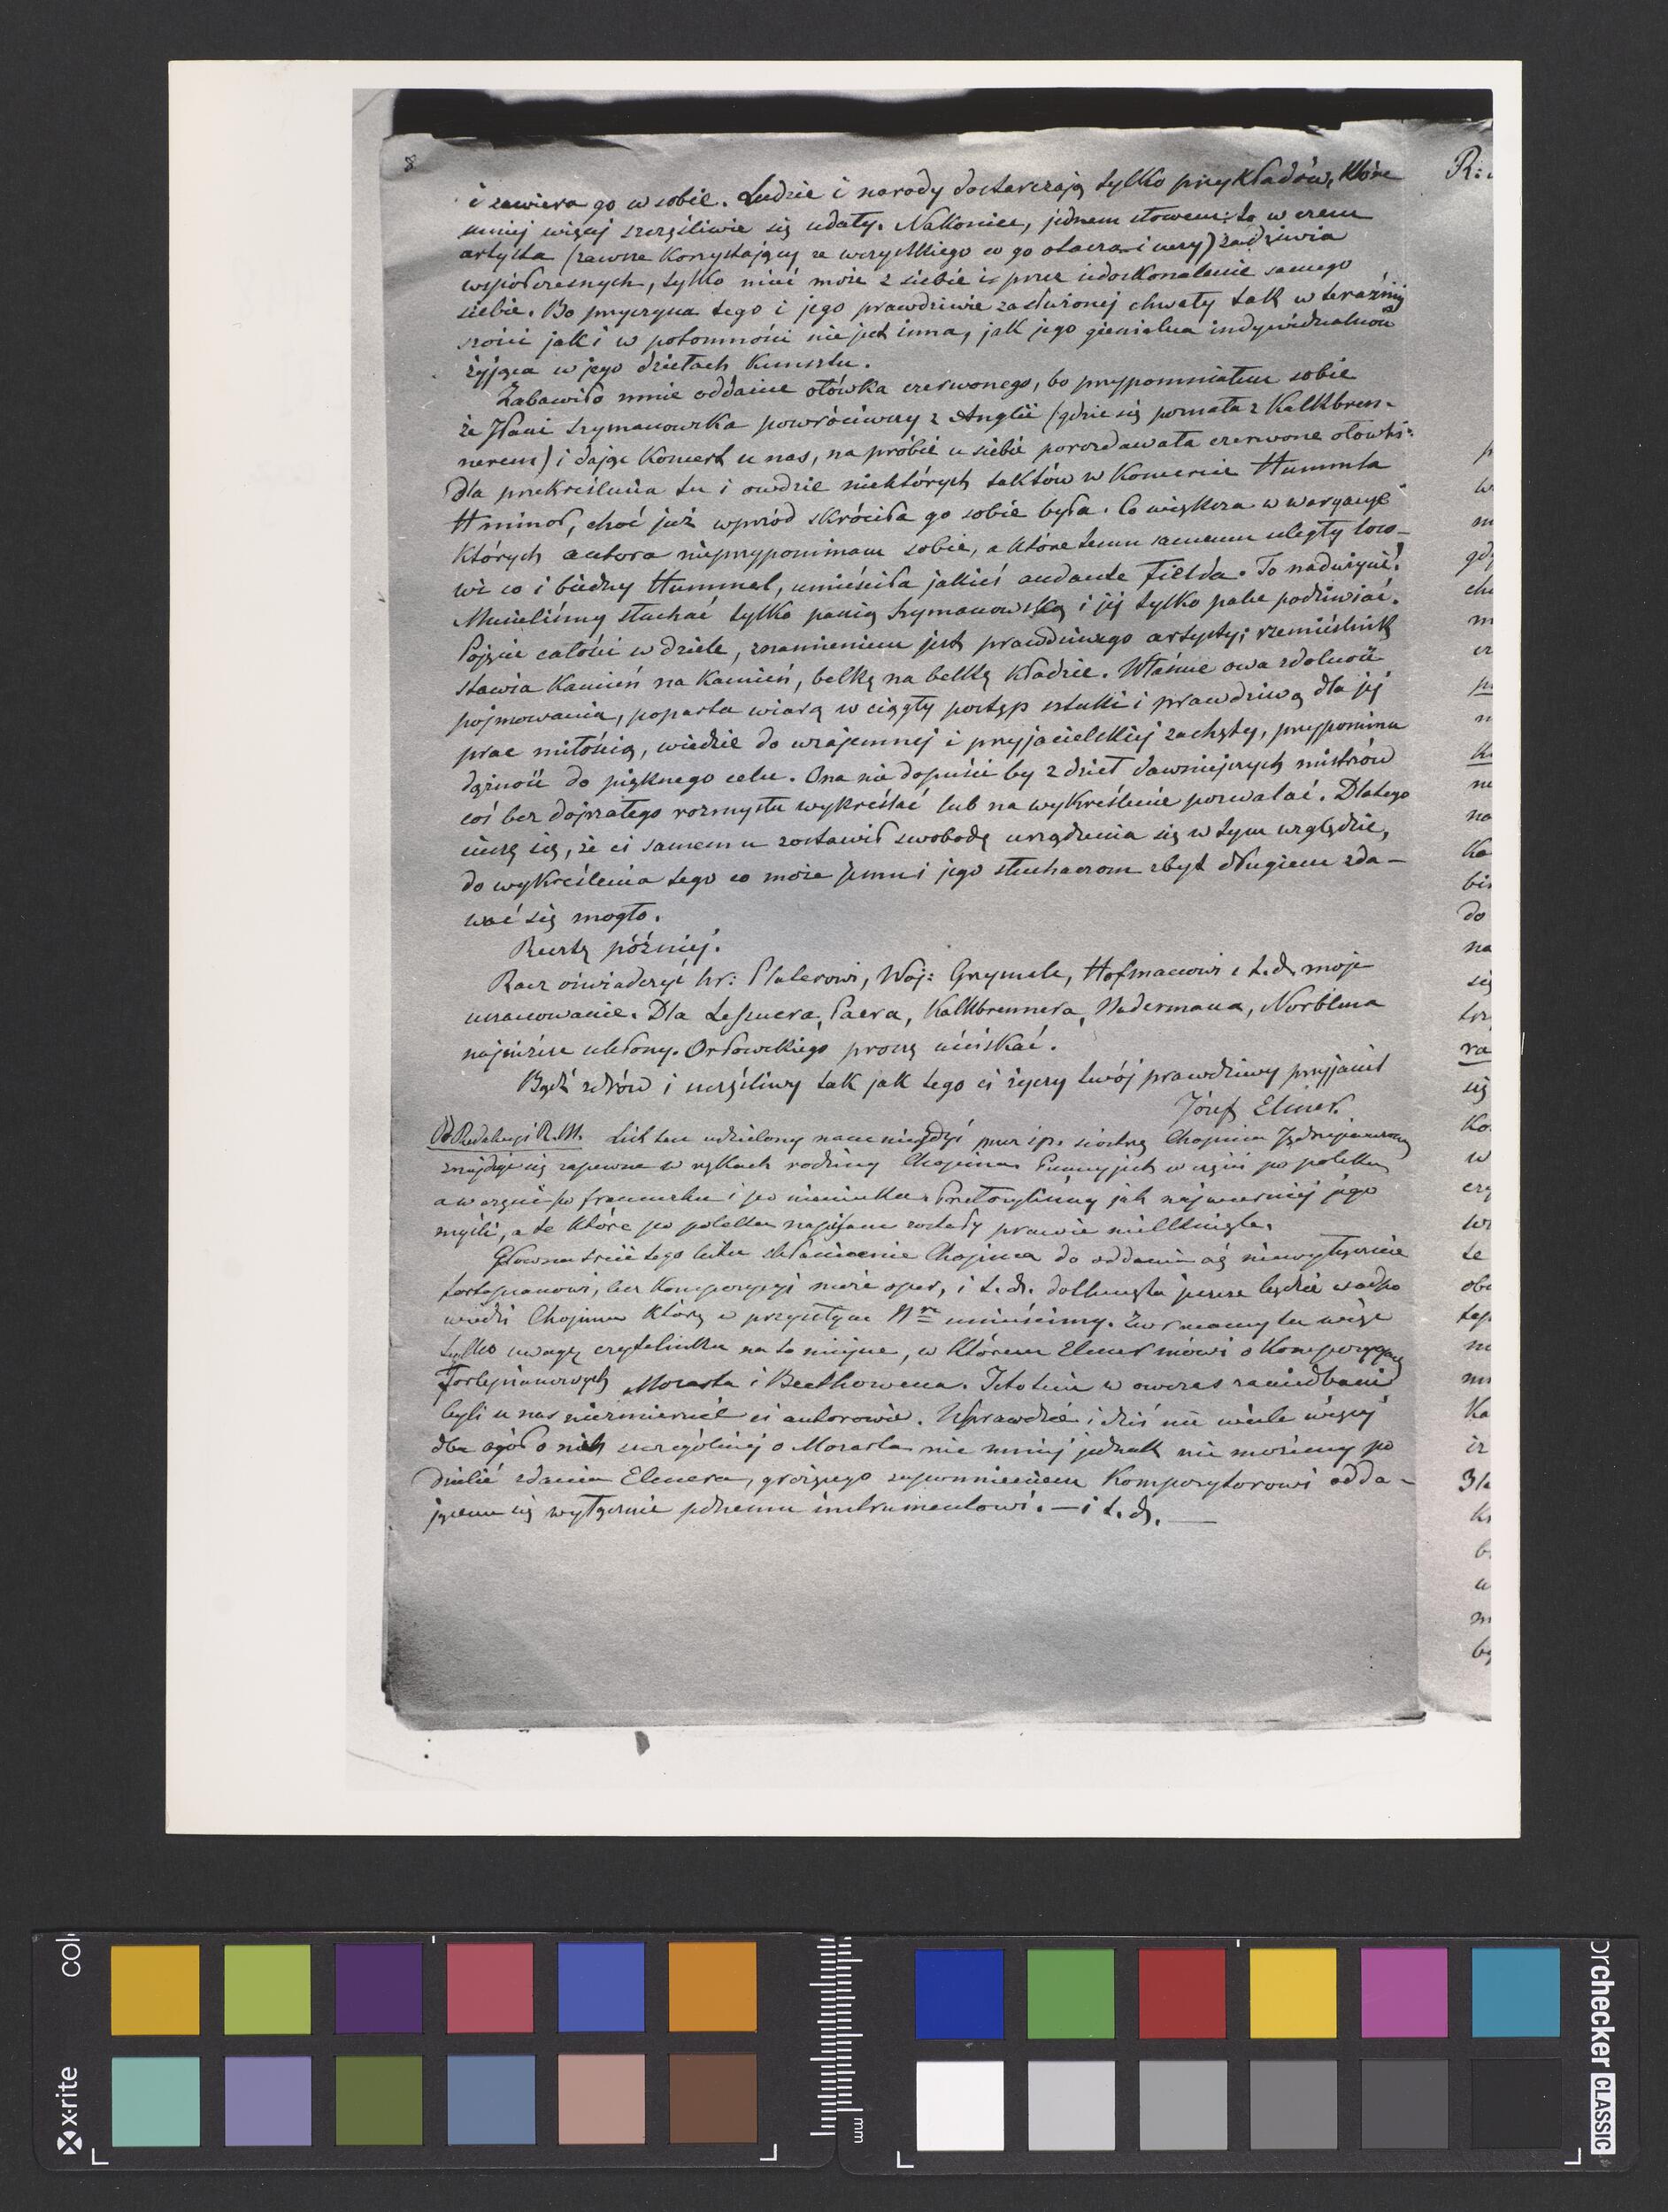 8
i zawiera go w sobie. Ludzie i narody dostarczają tylko przykładów, które
mniej więcej szczęśliwie się udały. Nakoniec, jednem słowem: to w czem
artysta (zawsze korzystający ze wszystkiego co go otacza i uczy) zadziwia
współczesnych, tylko mieć może z siebie i przez udoskonalenie samego
siebie. Bo przyczyna tego i jego prawdziwie zasłużonej chwały tak w teraźniej
szości jak i w potomności nie jest inna, jak jego gienialna indywidualność
żyjąca w jego dziełach kunsztu.
Zabawiło mnie oddanie ołówka czerwonego, bo przypomniałem sobie
że Pani Szymanowska powróciwszy z Anglii (gdzie się poznała z Kalkbren-
nerem) i dając koncert u nas, na próbie u siebie porozdawała czerwone ołówki
dla przekreślenia tu i owdzie niektórych taktów w koncercie Hummla
H minol, choć już wprzód skróciła go sobie była. Co większa w waryacye
których autora nieprzypominam sobie, a które temu samemu uległy loso-
wi co i biedny Hummel, umieściła jakieś andante Fielda. To nadużycie!
Musieliśmy słuchać tylko panią Szymanowską i jej tylko palce podziwiać.
Pojęcie całości w dziele, znamieniem jest prawdziwego artysty; rzemieślnik
stawia kamień na kamień, belkę na belkę kładzie. Właśnie owa zdolność
pojmowania, poparta wiarą w ciągły postęp sztuki i prawdziwą dla jej
prac miłością, wiedzie do wzajemnej i przyjacielskiej zachęty, przypomina
dążność do pięknego celu. Ona nie dopuści by z dzieł dawniejszych mistrzów
coś bez dojrzałego rozmysłu wykreślać lub na wykreślenie pozwalać. Dlatego
cieszę się, że ci samemu zostawił swobodę urządzenia się w tym względzie,
do wykreślenia tego co może jemu i jego słuchaczom zbyt długiem zda-
wać się mogło.
Resztę później.
Racz oświadczyć hr: Platerowi, Woj: Grzymale, Hofmanowi i t.d. moje
uszanowanie. Dla Lesuera, Paera, Kalkbrennera, Nadermana, Norblina
najniższe ukłony. Orłowskiego proszę uściskać.
Bądź zdrów i szczęśliwy tak jak tego ci życzy twój prawdziwy przyjaciel
Józef Elsner.
Od Redakcyi R. M. List ten udzielony nam niegdyś przez ś.p. siostrę Chopina Jędrzejewiczową
znajduje się zapewne w rękach rodziny Chopina. Pisany jest w części po polsku
a w części po francusku i po niemiecku. Przełożyliśmy jak najwierniej jego
myśli, a te które po polsku napisane zostały prawie nietknięte.
Główna treść tego listu skłanianie Chopina do oddania się niewyłącznie
fortepianowi, lecz kompozycyi może oper, i t. d. dotknięta jeszcze będzie w odpo
wiedzi Chopina którą w przyszłym Nrze umieścimy. Zwracamy tu więc
tylko uwagę czytelnika na to miejsce, w którem Elsner mówi o kompozycyach
fortepianowych Mozarta i Beethowena. Istotnie w owczas zaniedbani
byli u nas niezmiernie ci autorowie. Wprawdzie i dziś nie wiele więcej
dba ogół o nich szczególniej o Mozarta nie mniej jednak nie możemy po
dzielić zdania Elsnera, grożącego zapomnieniem kompozytorowi odda-
jącemu się wyłącznie jednemu instrumentowi. — i t. d. —
x-rite
mm
checker CLASSIC